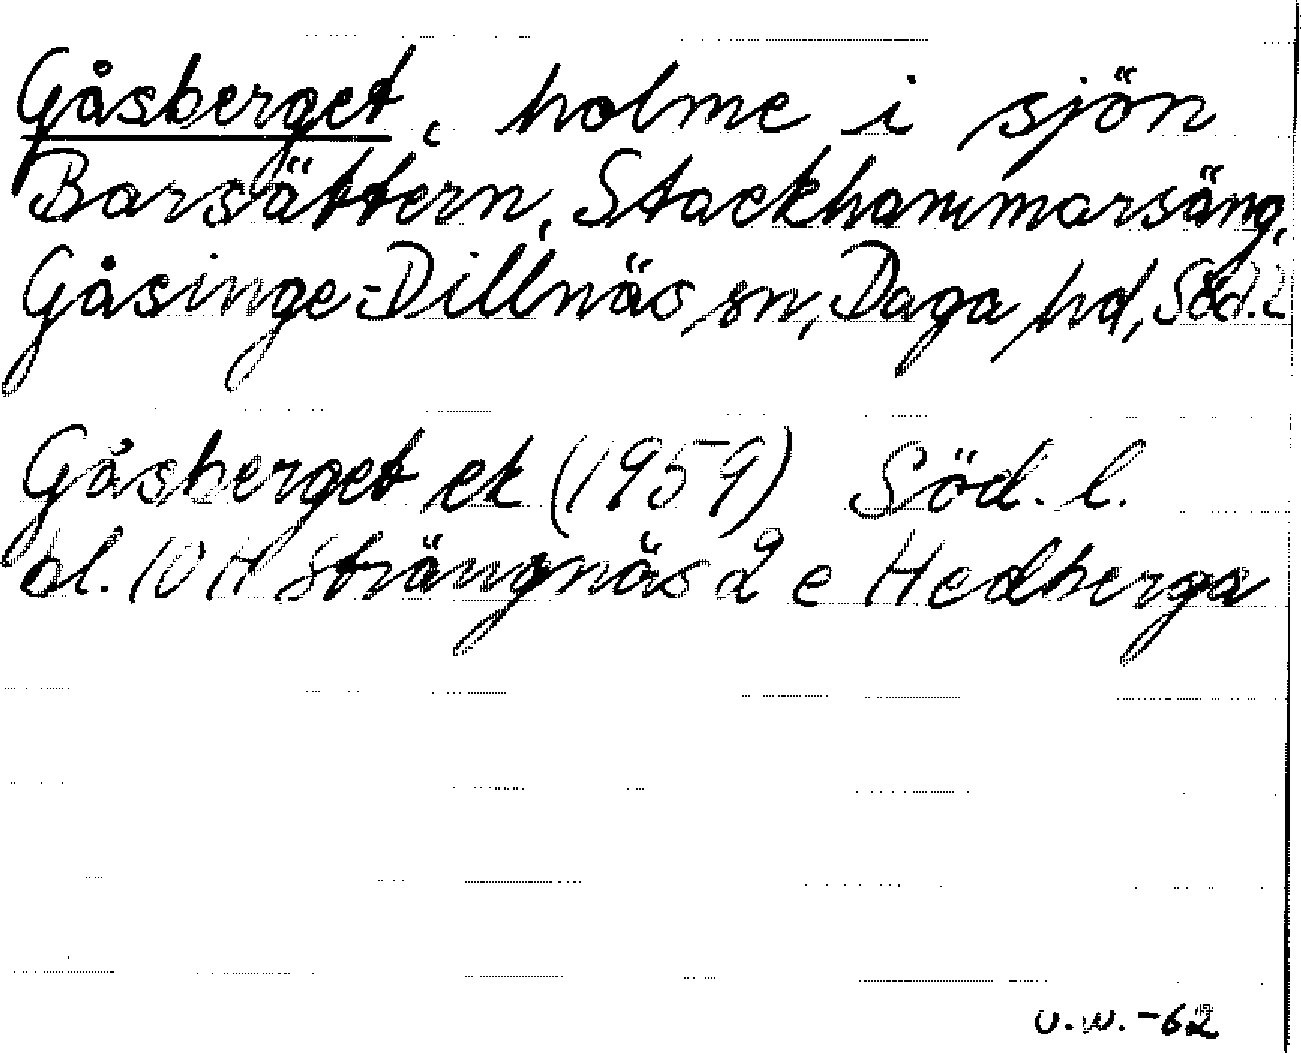 Gåsberget, holme i sjön
Barsättern, Stackhammarsäng,
Gåsinge-Dillnäs sn, Daga hd, Söd. l.
Gåsberget ek (1959) Söd. l.
bl. 10 H Strängnäs 2 e Hedberga
U.W. -62